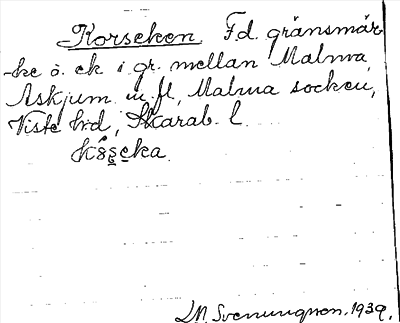 Korseken F.d. gränsmär-
-ke o. ek i gr. mellan Malma,
Askjum m. fl, Malma socken,
Viste h:d, Skarab. l.
L.M. Svenungsson. 1939.